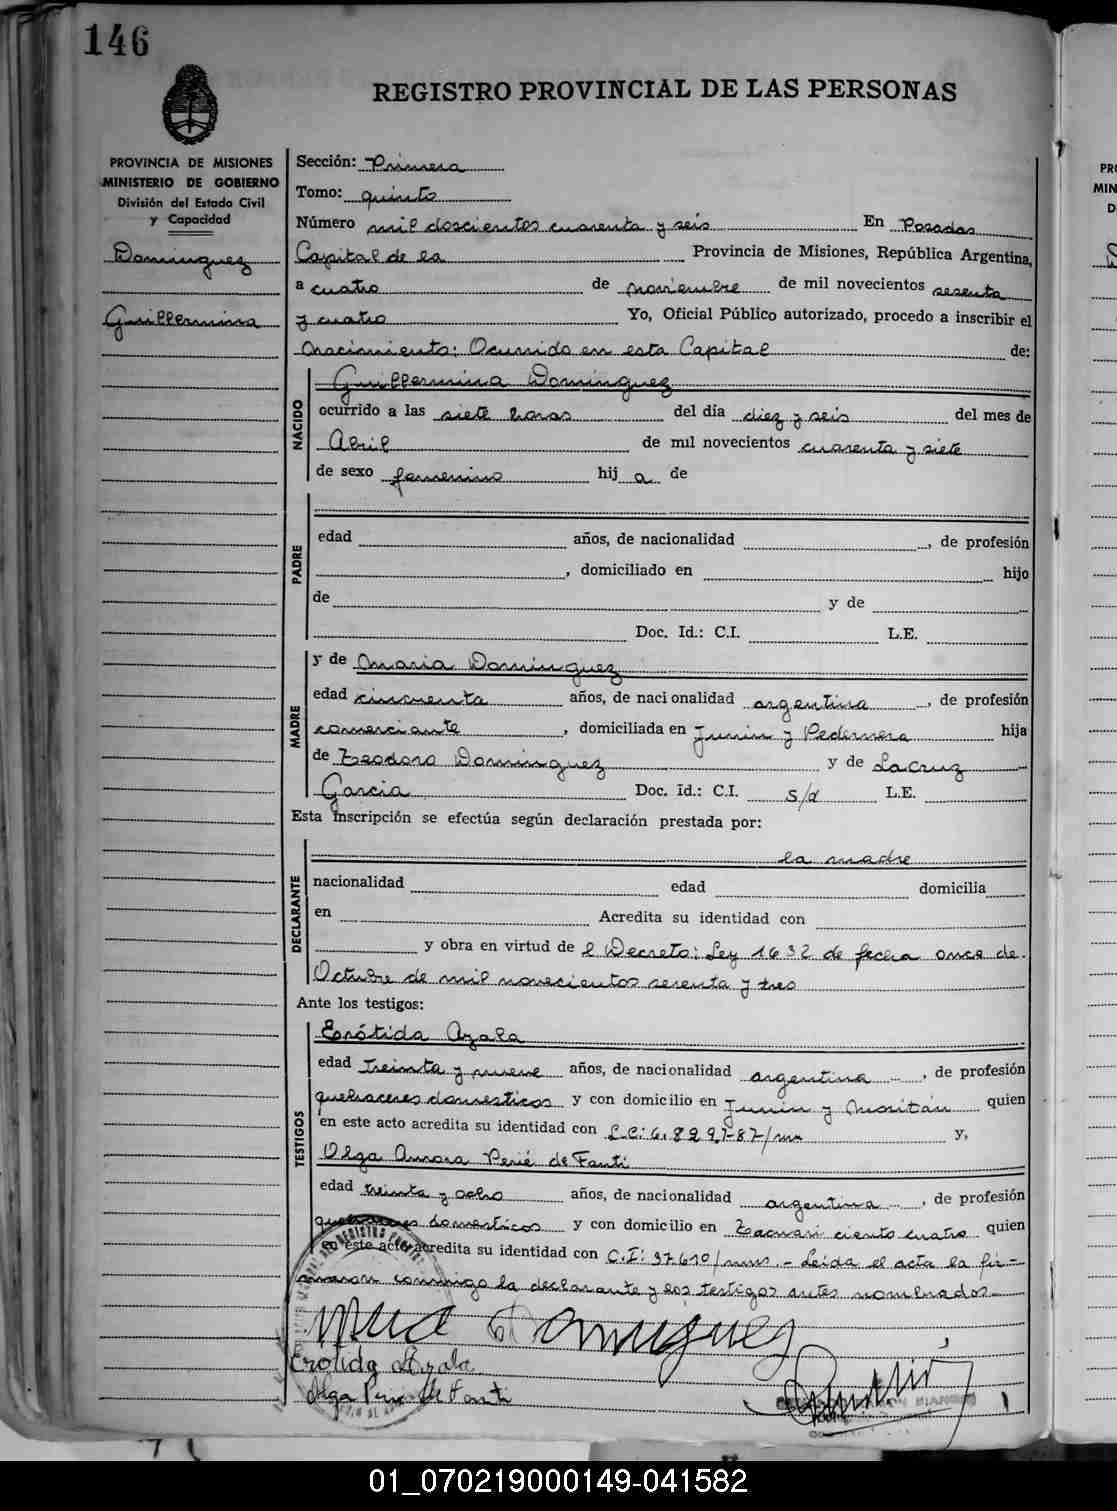 146
REGISTRO PROVINCIAL DE LAS PERSONAS
PROVINCIA DE MISIONES
MINISTERIO DE GOBIERNO
División del Estado Civil
y Capacidad
Dominguez
Guillermina
Sección: Primera
Tomo: quinto
Número mil doscientos cuarenta y seis En Posadas
Capital de la Provincia de Misiones, República Argentina,
a cuatro de noviembre de mil novecientos sesenta
y cuatro Yo, Oficial Público autorizado, procedo a inscribir el
nacimiento: Ocurrido en esta Capital de:
NACIDO
Guillermina Dominguez
ocurrido a las siete horas del día diez y seis del mes de
Abril de mil novecientos cuarenta y siete
de sexo femenino hij a de
PADRE
edad años, de nacionalidad , de profesión
, domiciliado en hijo
de y de
Doc. Id.: C.I. L.E.
MADRE
y de Maria Dominguez
edad cincuenta años, de nacionalidad argentina , de profesión
comerciante , domiciliada en Junin y Pedernera hija
de Teodoro Dominguez y de Lacruz
Garcia Doc. Id.: C.I. s/d L.E.
Esta inscripción se efectúa según declaración prestada por:
DECLARANTE
la madre
nacionalidad edad domicilia
en Acredita su identidad con
y obra en virtud de l Decreto: Ley 1632 de fecha once de
Octubre de mil novecientos sesenta y tres
Ante los testigos:
TESTIGOS
Erótida Ayala
edad treinta y nueve años, de nacionalidad argentina , de profesión
quehaceres domesticos y con domicilio en Junin y quien
en este acto acredita su identidad con L.C: y,
Olga Amora Perié de Fanti
edad treinta y ocho años, de nacionalidad argentina , de profesión
quehaceres domesticos y con domicilio en Tacuari ciento cuatro quien
en este acto acredita su identidad con C.I: 37610/mns. - Leida el acta la fir-
maron conmigo la declarante y los testigos antes nombrados.
Maria Dominguez
Erotida Ayala
Olga Perié de Fanti
01_070219000149-041582